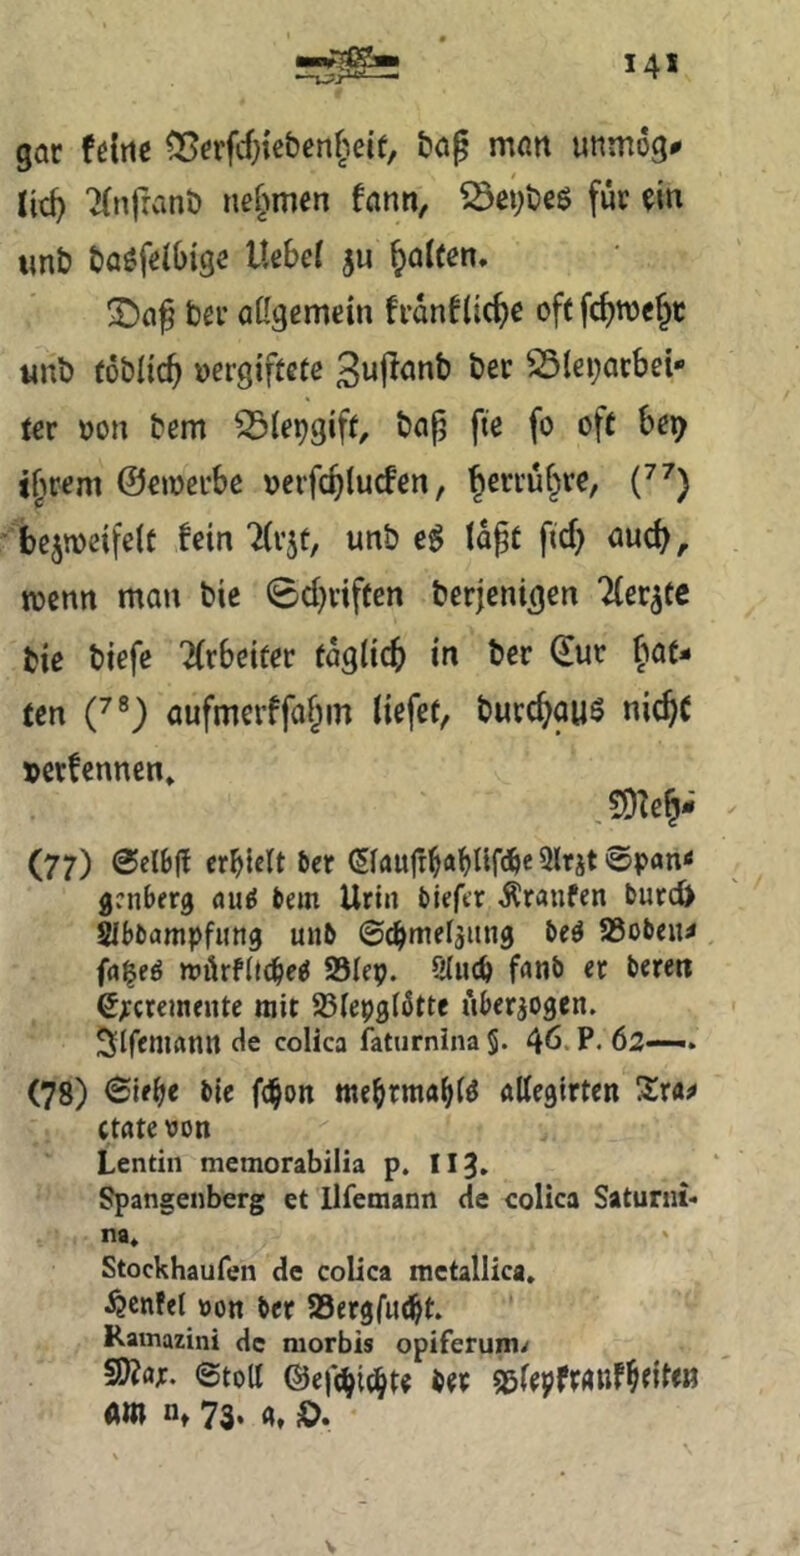 141
gar keine Verschiedenheit, daß man unmög-
lich Anstand nehmen kann, Beydes für ein
und dasselbige Uebel zu halten.
Daß der allgemein kränkliche oft schwehr
und tödlich vergiftete Zustand der Bleyarbei-
ter von dem Bleygift, daß sie so oft bey
ihrem Gewerbe verschlucken, herrühre, (77)
bezweifelt kein Arzt, und es läßt sich auch,
wenn man die Schriften derjenigen Aerzte
die diese Arbeiter täglich in der Cur hat-
ten (78) aufmerksahm lieset, durchaus nicht
verkennen.
Meh-
(77) Selbst erhielt der Clausthahlische Arzt Span-
genberg aus dem Urin dieser Kranken durch
Abdampfung und Schmelzung des Boden-
satzes würkliches Bley. Auch fand er deren
Excremente mit Bleyglötte überzogen.
Ilsemann de colica saturnina §. 46. P. 62—.
(78) Siehe die schon mehrmahls allegirten Tra-
ctate von
Lentin memorabilia p. 113.
Spangenberg et Ilsemann de colica Saturni-
na.
Stockhausen de colica metallica.
Henkel von der Bergsucht.
Ramazini de morbis opiferum.
Max. Stoll Geschichte der Bleykrankheiten
am n. 73. a. O.